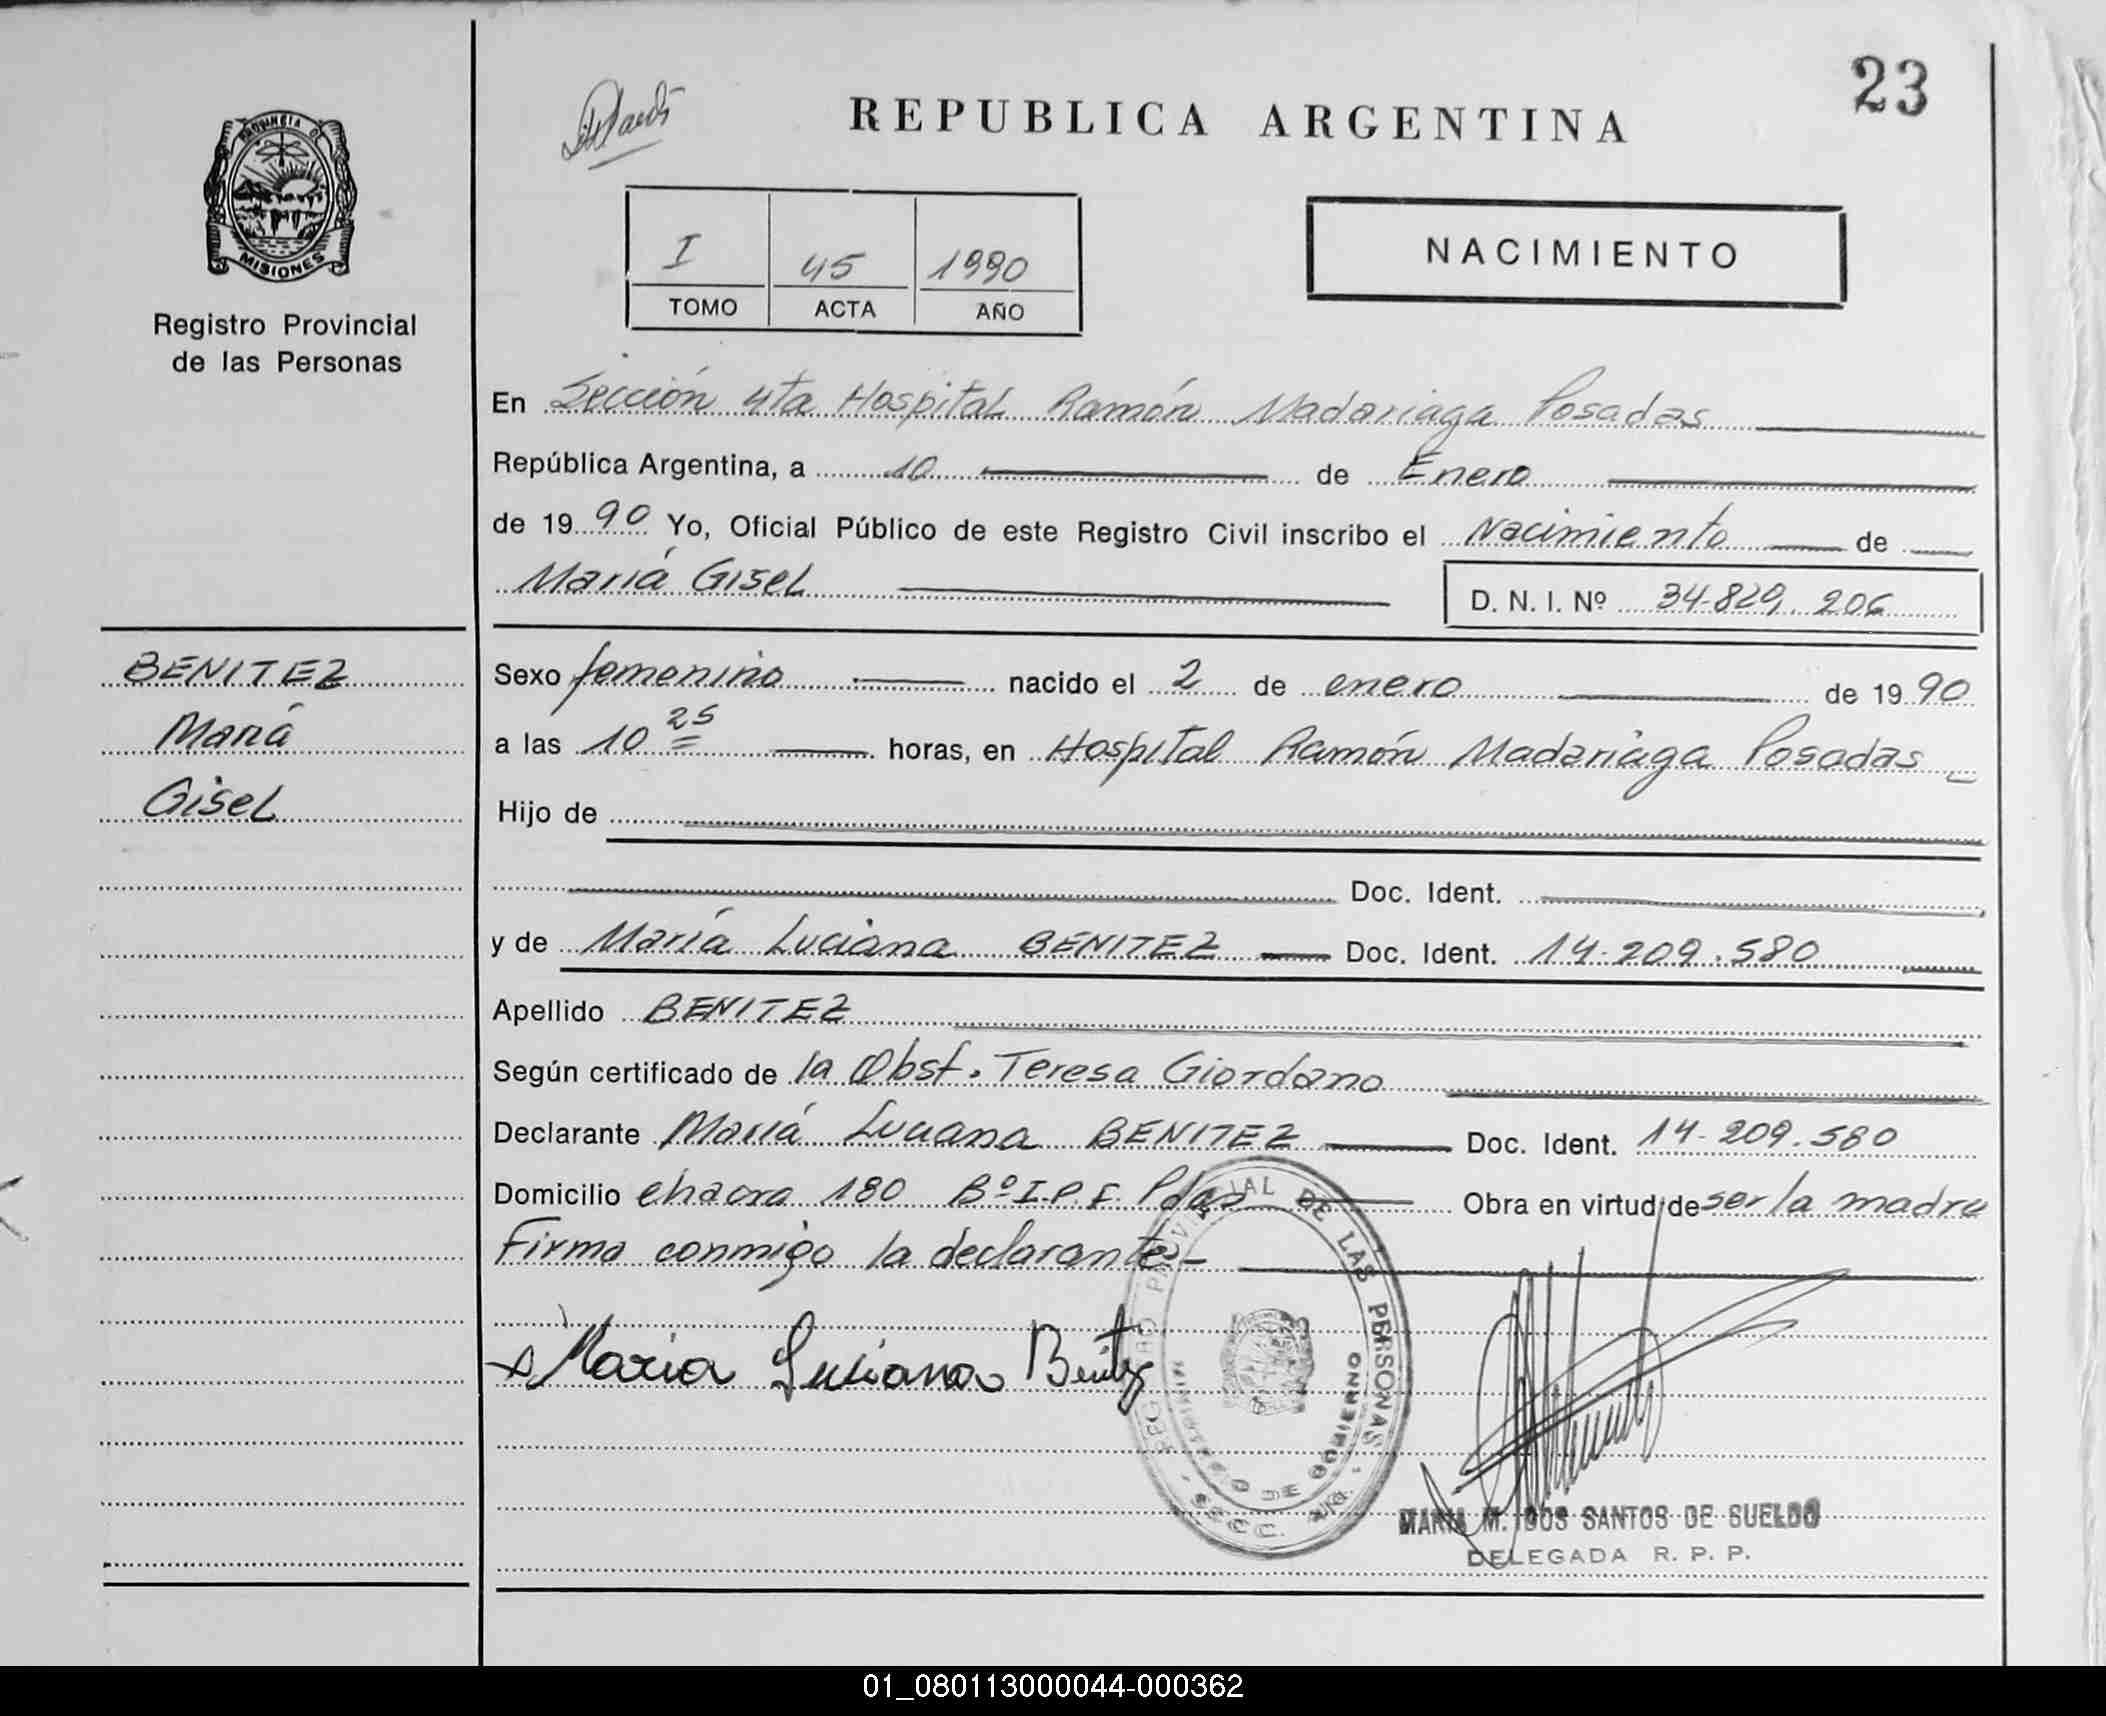 23
REPUBLICA ARGENTINA
PROVINCIA D
MISIONES
Registro Provincial
de las Personas
I 45 1990
TOMO ACTA AÑO
NACIMIENTO
En Sección 4ta Hospital Ramón Madariaga Posadas
República Argentina, a 10 de Enero
de 1990 Yo, Oficial Público de este Registro Civil inscribo el Nacimiento de
María Gisel D. N. I. Nº 34.829.206
BENITEZ
María
Gisel
Sexo femenino nacido el 2 de enero de 1990
a las 10 25 horas, en Hospital Ramón Madariaga Posadas
Hijo de
Doc. Ident.
y de María Luciana BENITEZ Doc. Ident. 14.209.580
Apellido BENITEZ
Según certificado de la Obst. Teresa Giordano
Declarante María Luciana BENITEZ Doc. Ident. 14.209.580
Domicilio chacra 180 Bº I.P.F. Pdas Obra en virtud de ser la madre
Firma conmigo la declarante-
Maria Luciana Benitez
REGISTRO PROVINCIAL DE LAS PERSONAS
MINISTERIO DE GOBIERNO
MARIA M. DOS SANTOS DE SUELDO
DELEGADA R. P. P.
01_080113000044-000362